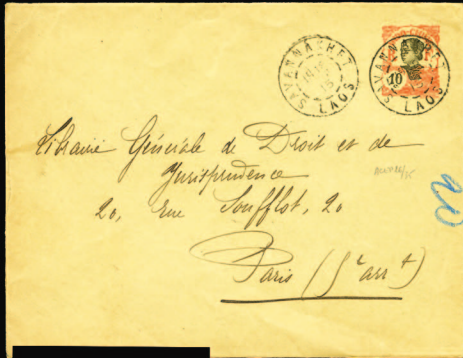 SAVANNAKHET
LAOS
15
SAVANNAKHET
LAOS
10
Librairie Générale de Droit et de
Jurisprudence
20, rue Soufflot, 20
Paris (5e arrt)
20